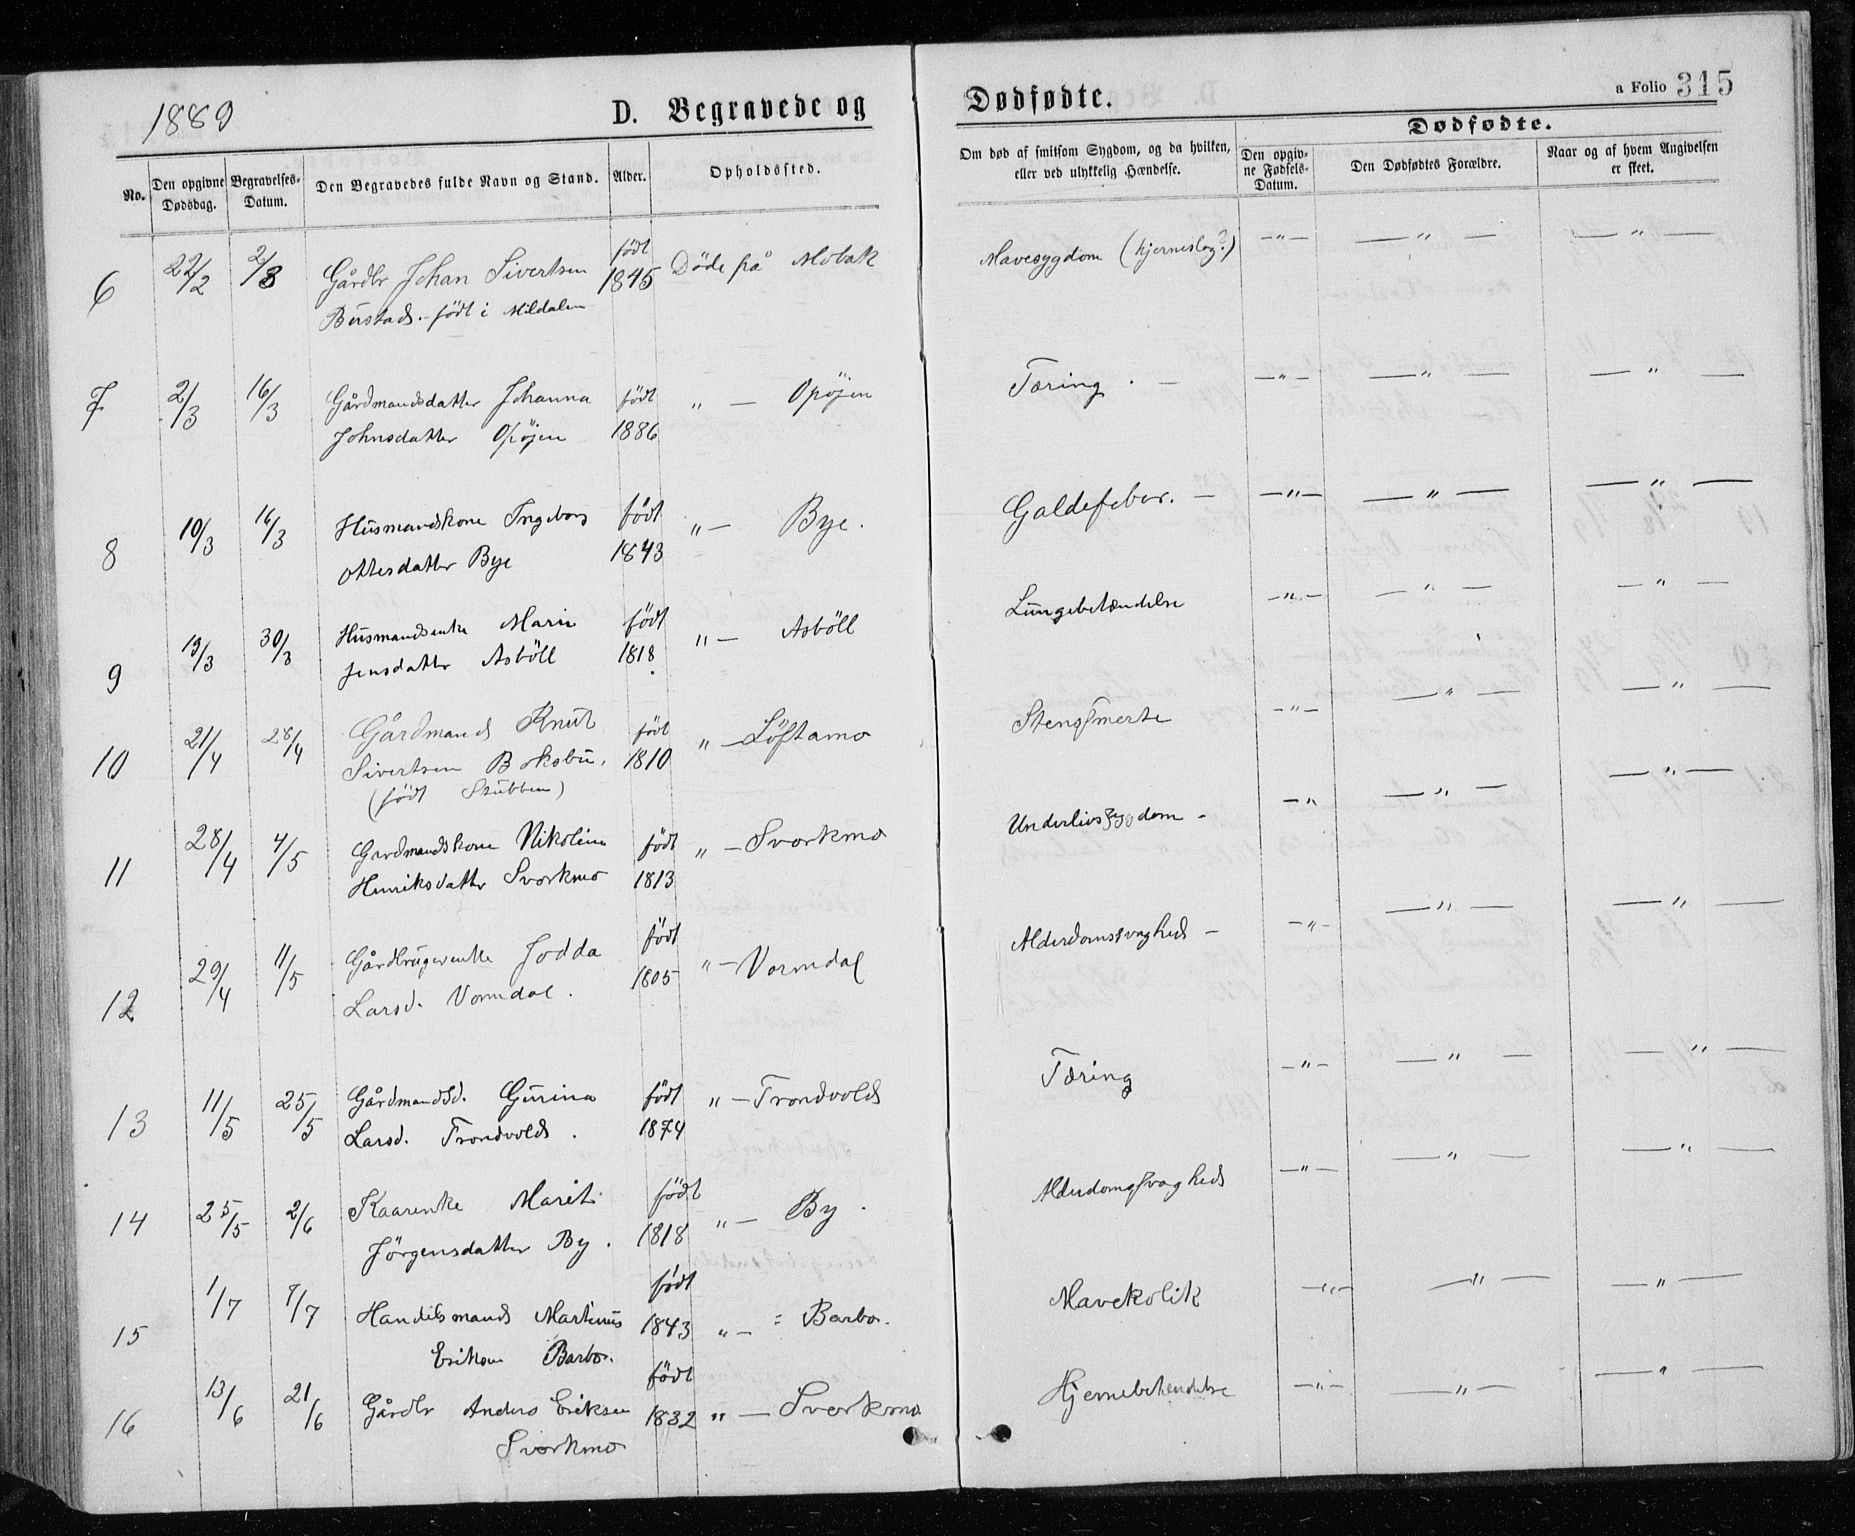 1889
D. Begravede og Dødfødte.
a Folio 315
No.
Den opgivne Dødsdag.
Begravelses-Datum.
Den Begravedes fulde Navn og Stand.
Alder.
Opholdssted.
Om død af smitsom Sygdom, og da hvilken, eller ved ulykkelig Hændelse.
Dødfødte.
Den opgivne Fødsels-Datum.
Den Dødfødtes Forældre.
Naar og af hvem Angivelsen er skeet.
6 22/2 2/3 Gårdbr Johan Sivertsen født Døde på Mobak Mavesygdom (hjerneslag?) —"— —"— —"—
Bustad. født i Mildalen 1845
7 2/3 16/3 Gårdmandsdatter Johanna født " — Opöjen Tæring. — —"— —"— —"—
Johnsdatter Opöjen 1886
8 10/3 16/3 Husmandskone Ingeborg født "— Bye. Galdefeber. — —"— —"— —"—
Ottesdatter Bye 1843
9 19/3 30/3 Husmandsenke Marie født "— Asböll Lungebetændelse —"— —"— —"—
Jensdatter Asböll 1818
10 21/4 28/4 Gårdmand Knut født "— Löftamo Stensmerte —"— —"— —"—
Sivertsen Boksbu, 1810
(født Stubben)
11 28/4 4/5 Gårdmandskone Nikoline født "— Svorkmo Underlivssygdom - —" —"— —"—
Henriksdatter Svorkmo 1813
12 29/4 11/5 Gårdbrugerenke Jodda født "— Vormdal Alderdomssvaghed — —"— —"— —"—
Larsd. Vormdal. 1805
13 11/5 25/5 Gårdmandsd. Gurina født "— Trondvold Tæring —"— —"— —"—
Larsd. Trondvold. 1874
14 25/5 2/6 Kaarenke Marit født "— By. Alderdomssvaghed —"— —"— —"—
Jörgensdatter By. 1818
15 1/7 7/7 Handelsmand Martinus født "— Barbo. Mavekolik —"— —"— —"—
Eriksen Barbo. 1843
16 13/6 21/6 Gårdbr Anders Eriksen født "— Svorkmo Hjernebetendelse —"— —"— —"—
Svorkmo 1832